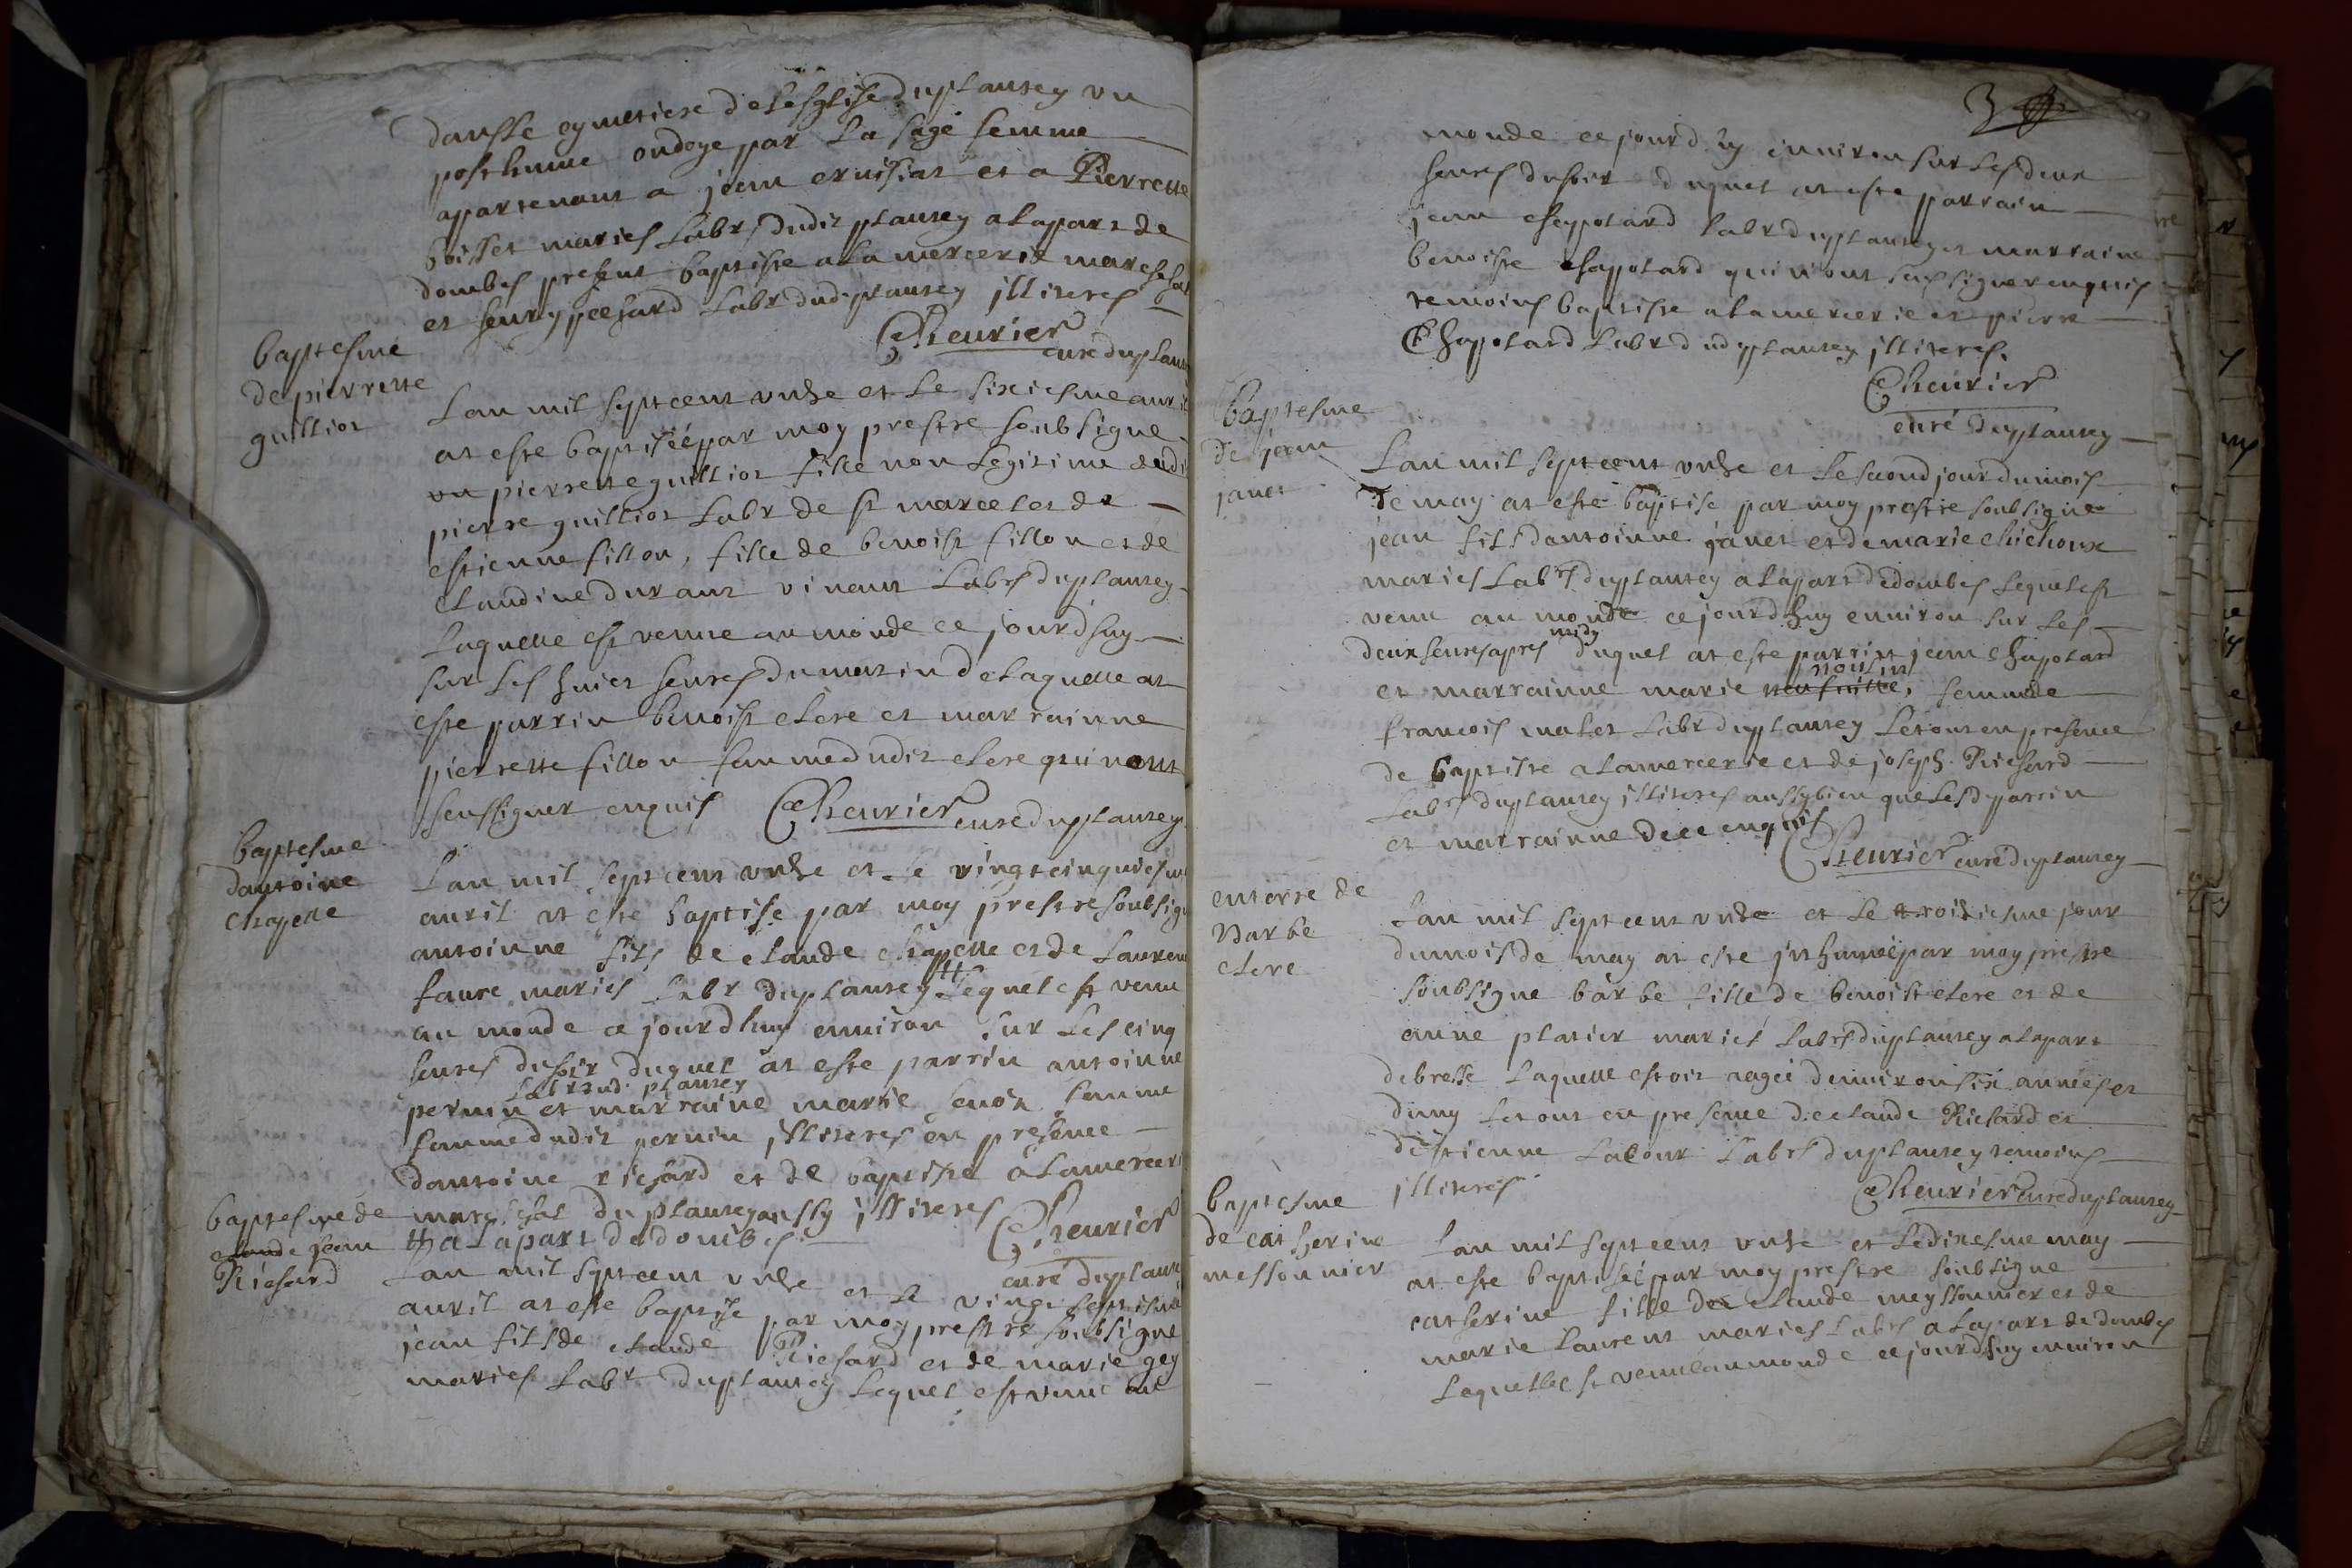 dansle cymetiere delesglise duplantey un
posthume ondoye par la sage femme
apartenant a jean eruissiat et a Pierrette
boisset maries labr dudit plantey alapart de
dombes present baptiste alamercerie mareschal
et henry pechard labr dud plantey illiteres
Cheurier
cure duplantey
baptesme
de pierrette
guilliot
Lan mil septcent unze et le sixiesme auril
at este baptiséé par moy prestre soubsigne
un pierrette guilliot fille non legitime dudit
pierre guilliot labr de st marcel et de
estienne fillon, fille de benoist fillon et de
claudine durant vivant labrs duplantey
laquelle est venue au monde ce jourdhuy
sur les huict heures du matin delaquelle at
este parrin benoist clere et marrainne
pierrette fillon famme dudit clere qui nont
seu signer enquis Cheurier cure duplantey
baptesme
dantoine
chapelle
Lan mil septcent unze et le vingtcinquiesme
auril at este baptise par moy prestre soubsigne
antoinne fils de claude chapelle et de laurence
faure maries labr duplantey # lequel est venu
au monde ce jourdhuy enuiron sur les cinq
heures dusoir duquel at este parrin antoinne
labr dud. plantey
pernin et marraine marie famme
famme dudit pernin illiteres en presence
dantoine richard et de baptiste alamercerie
mareschal duplantey aussy illiteres Cheurier
# alapart de dombes cure duplantey
baptesme de
claude jean
Richard
Lan mil septcent unze et le vingt septiesme
auril at este baptise par moy prestre soubsigne
jean fils de claude Richard et de marie gey
maries labr duplantey lequel est venu au
3
monde ce jourdhuy enuiron sur les deux
heures dusoir duquel at este parrain
jean chapolard labr duplantey et marraine
benoiste chapolard qui nont seu signer enquis
temoins baptiste alamercerie et pierre
Chapolard labr dud plantey illiteres.
Cheurier
curé duplantey
baptesme
de jean
janet
Lan mil septcent unze et le second jour dumois
de may at este baptise par moy prestre soubsigne
jean fils dantoinne janet et de marie chichoux
maries labrs duplantey alapart dedombes lequel est
venu au monde ce jourdhuy enuiron sur les
deux heures apres midy duquel at este parrin jean chapolard
noulin
et marrainne marie femme de
francois malet labr duplantey le tout en presence
de baptiste alamercerie et de joseph Richard
labrs duplantey illiteres aussybien que lesd parrin
et marrainne dece enquis
Cheurier cure duplantey
enterre de
barbe
clere
Lan mil septcent unze et le troisiesme jour
dumois de may at este inhumée par moy prestre
soubsigne barbe fille de benoist clere et de
anne platier maries labrs duplantey alapart
debresse laquelle estoit aagée denuiron six années et
dimy le tout en presence de claude Richard et
destienne labrs duplantey temoins
illiteres
Cheurier cure duplantey
baptesme
de catherine
messonnier
Lan mil septcent unze et le dixiesme may
at este baptiséé par moy prestre soubsigne
catherine fille de claude meyssonnier et de
marie laurent maries labrs alapart de dombes
laquelle est venue au monde ce jourdhuy enuiron